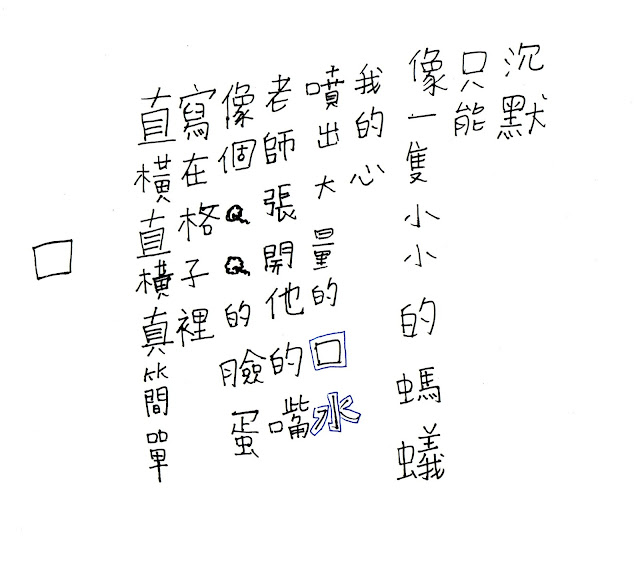 口
直橫直橫真簡單
寫在格子裡
像個QQ的臉蛋
老師張開他的嘴
噴出大量的口水
我的心
像一隻小小的螞蟻
只能
沉默